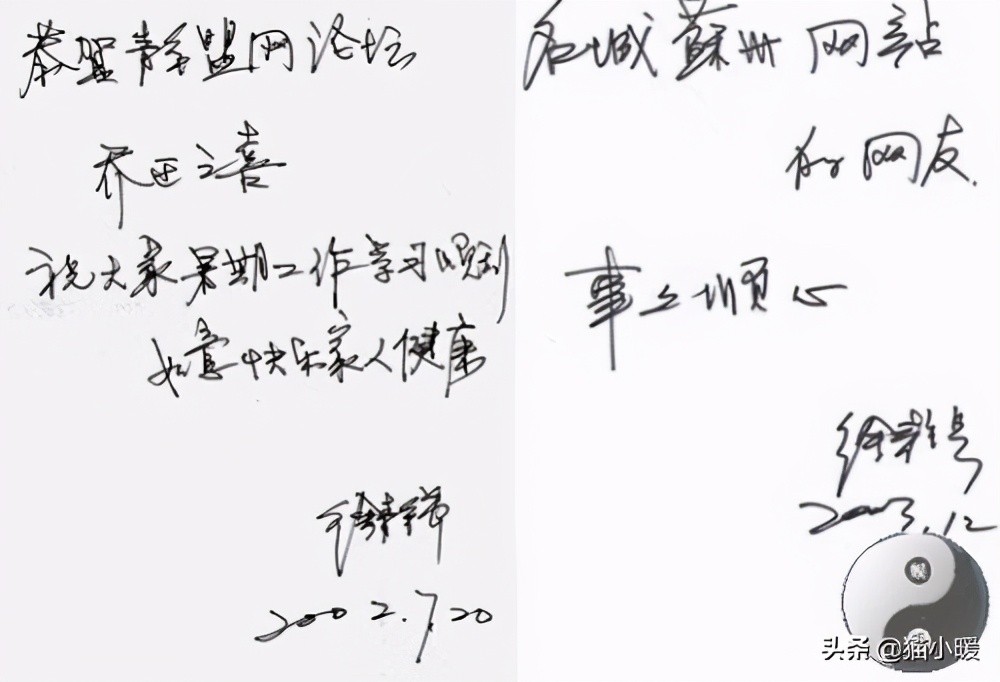 恭贺盟网论坛
乔迁之喜
祝大家暑期工作学习顺利
如意快乐家人健康
2002.7.20
名城蘇州网站
的网友
事々顺心
2003.12
头条 @猫小暖